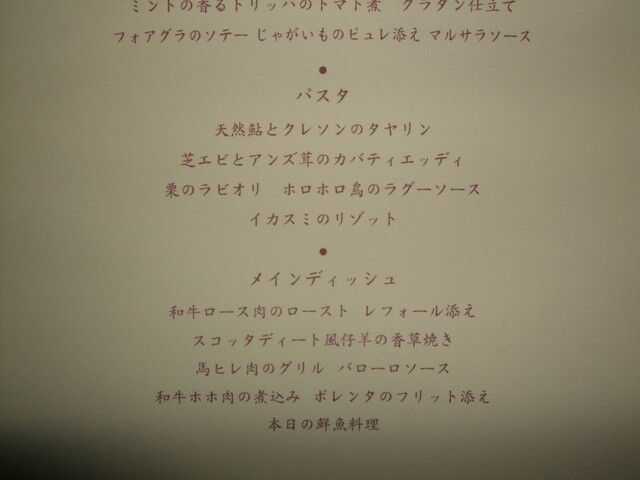 ミントの香るトリッパのトマト煮　グラタン仕立て
フォアグラのソテー じゃがいものピュレ添え マルサラソース
●
パスタ
天然鮎とクレソンのタヤリン
芝エビとアンズ茸のカバティエッディ
栗のラビオリ　ホロホロ鳥のラグーソース
イカスミのリゾット
●
メインディッシュ
和牛ロース肉のロースト　レフォール添え
スコッタディート風仔羊の香草焼き
馬ヒレ肉のグリル　バローロソース
和牛ホホ肉の煮込み　ポレンタのフリット添え
本日の鮮魚料理